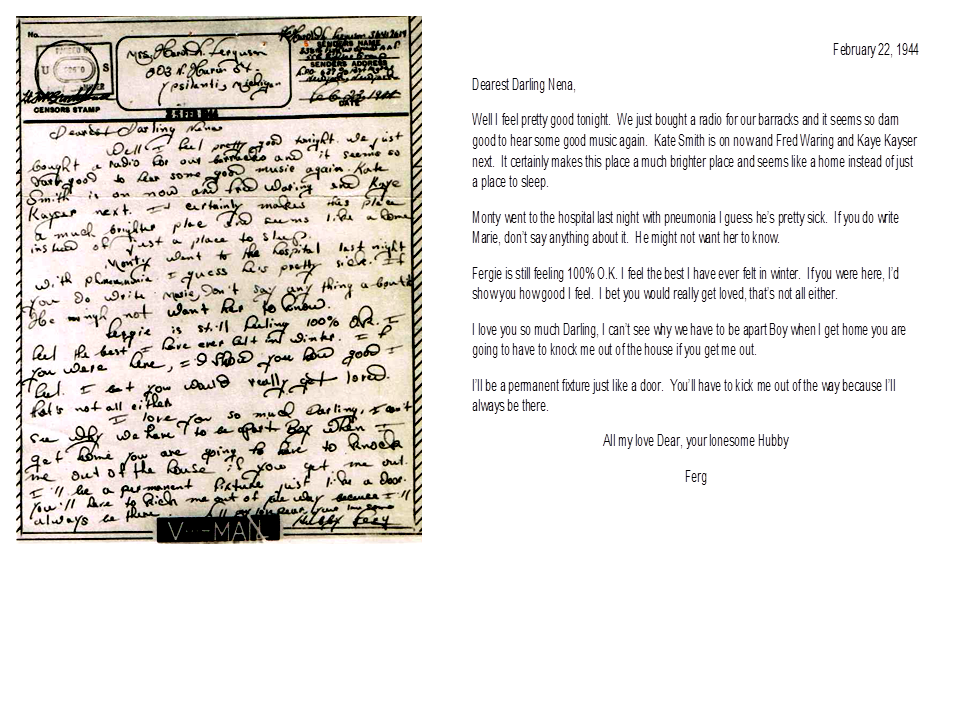 No.
PASSED BY
U S
CENSORS STAMP
Mrs. Harold Ferguson
203 N. Huron St.
Ypsilanti, Michigan
SENDERS NAME
SENDERS ADDRESS
Feb 22, 1944
DATE
25 FEB 1944
Dearest Darling Nena
Well I feel pretty good tonight. We just
bought a radio for our barracks and it seems so
dam good to hear some good music again. Kate
Smith is on now and Fred Waring and Kaye
Kayser next. It certainly makes this place
a much brighter place and seems like a home
instead of just a place to sleep.
Monty went to the hospital last night
with pneumonia I guess he's pretty sick. If
you do write Marie, don't say anything about it
He might not want her to know.
Fergie is still feeling 100% O.K. I
feel the best I have ever felt in winter. If
you were here, I'd show you how good I
feel. I bet you would really get loved.
that's not all either
I love you so much Darling, I can't
see why we have to be apart Boy when I
get home you are going to have to knock
me out of the house if you get me out.
I'll be a permanent fixture just like a door.
You'll have to kick me out of the way because I'll
always be there. All my love Dear, your lonesome
Hubby Ferg
V···-MAIL
February 22, 1944
Dearest Darling Nena,
Well I feel pretty good tonight. We just bought a radio for our barracks and it seems so dam
good to hear some good music again. Kate Smith is on now and Fred Waring and Kaye Kayser
next. It certainly makes this place a much brighter place and seems like a home instead of just
a place to sleep.
Monty went to the hospital last night with pneumonia I guess he's pretty sick. If you do write
Marie, don't say anything about it. He might not want her to know.
Fergie is still feeling 100% O.K. I feel the best I have ever felt in winter. If you were here, I'd
show you how good I feel. I bet you would really get loved, that's not all either.
I love you so much Darling, I can't see why we have to be apart Boy when I get home you are
going to have to knock me out of the house if you get me out.
I'll be a permanent fixture just like a door. You'll have to kick me out of the way because I'll
always be there.
All my love Dear, your lonesome Hubby
Ferg